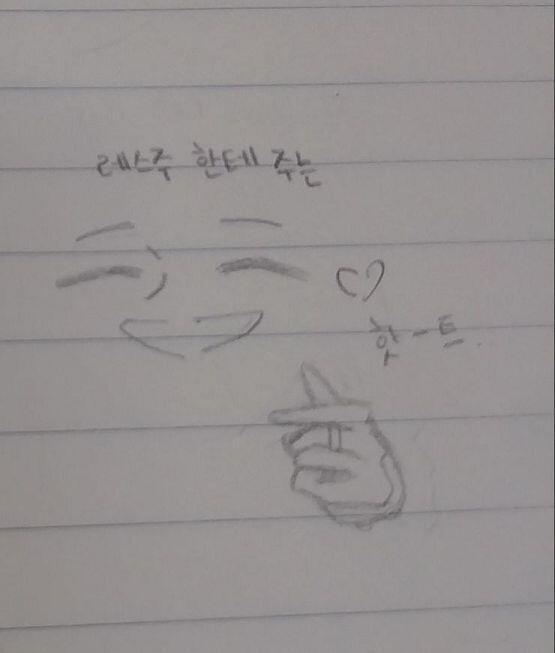 레스주 한테 주는
핫-트